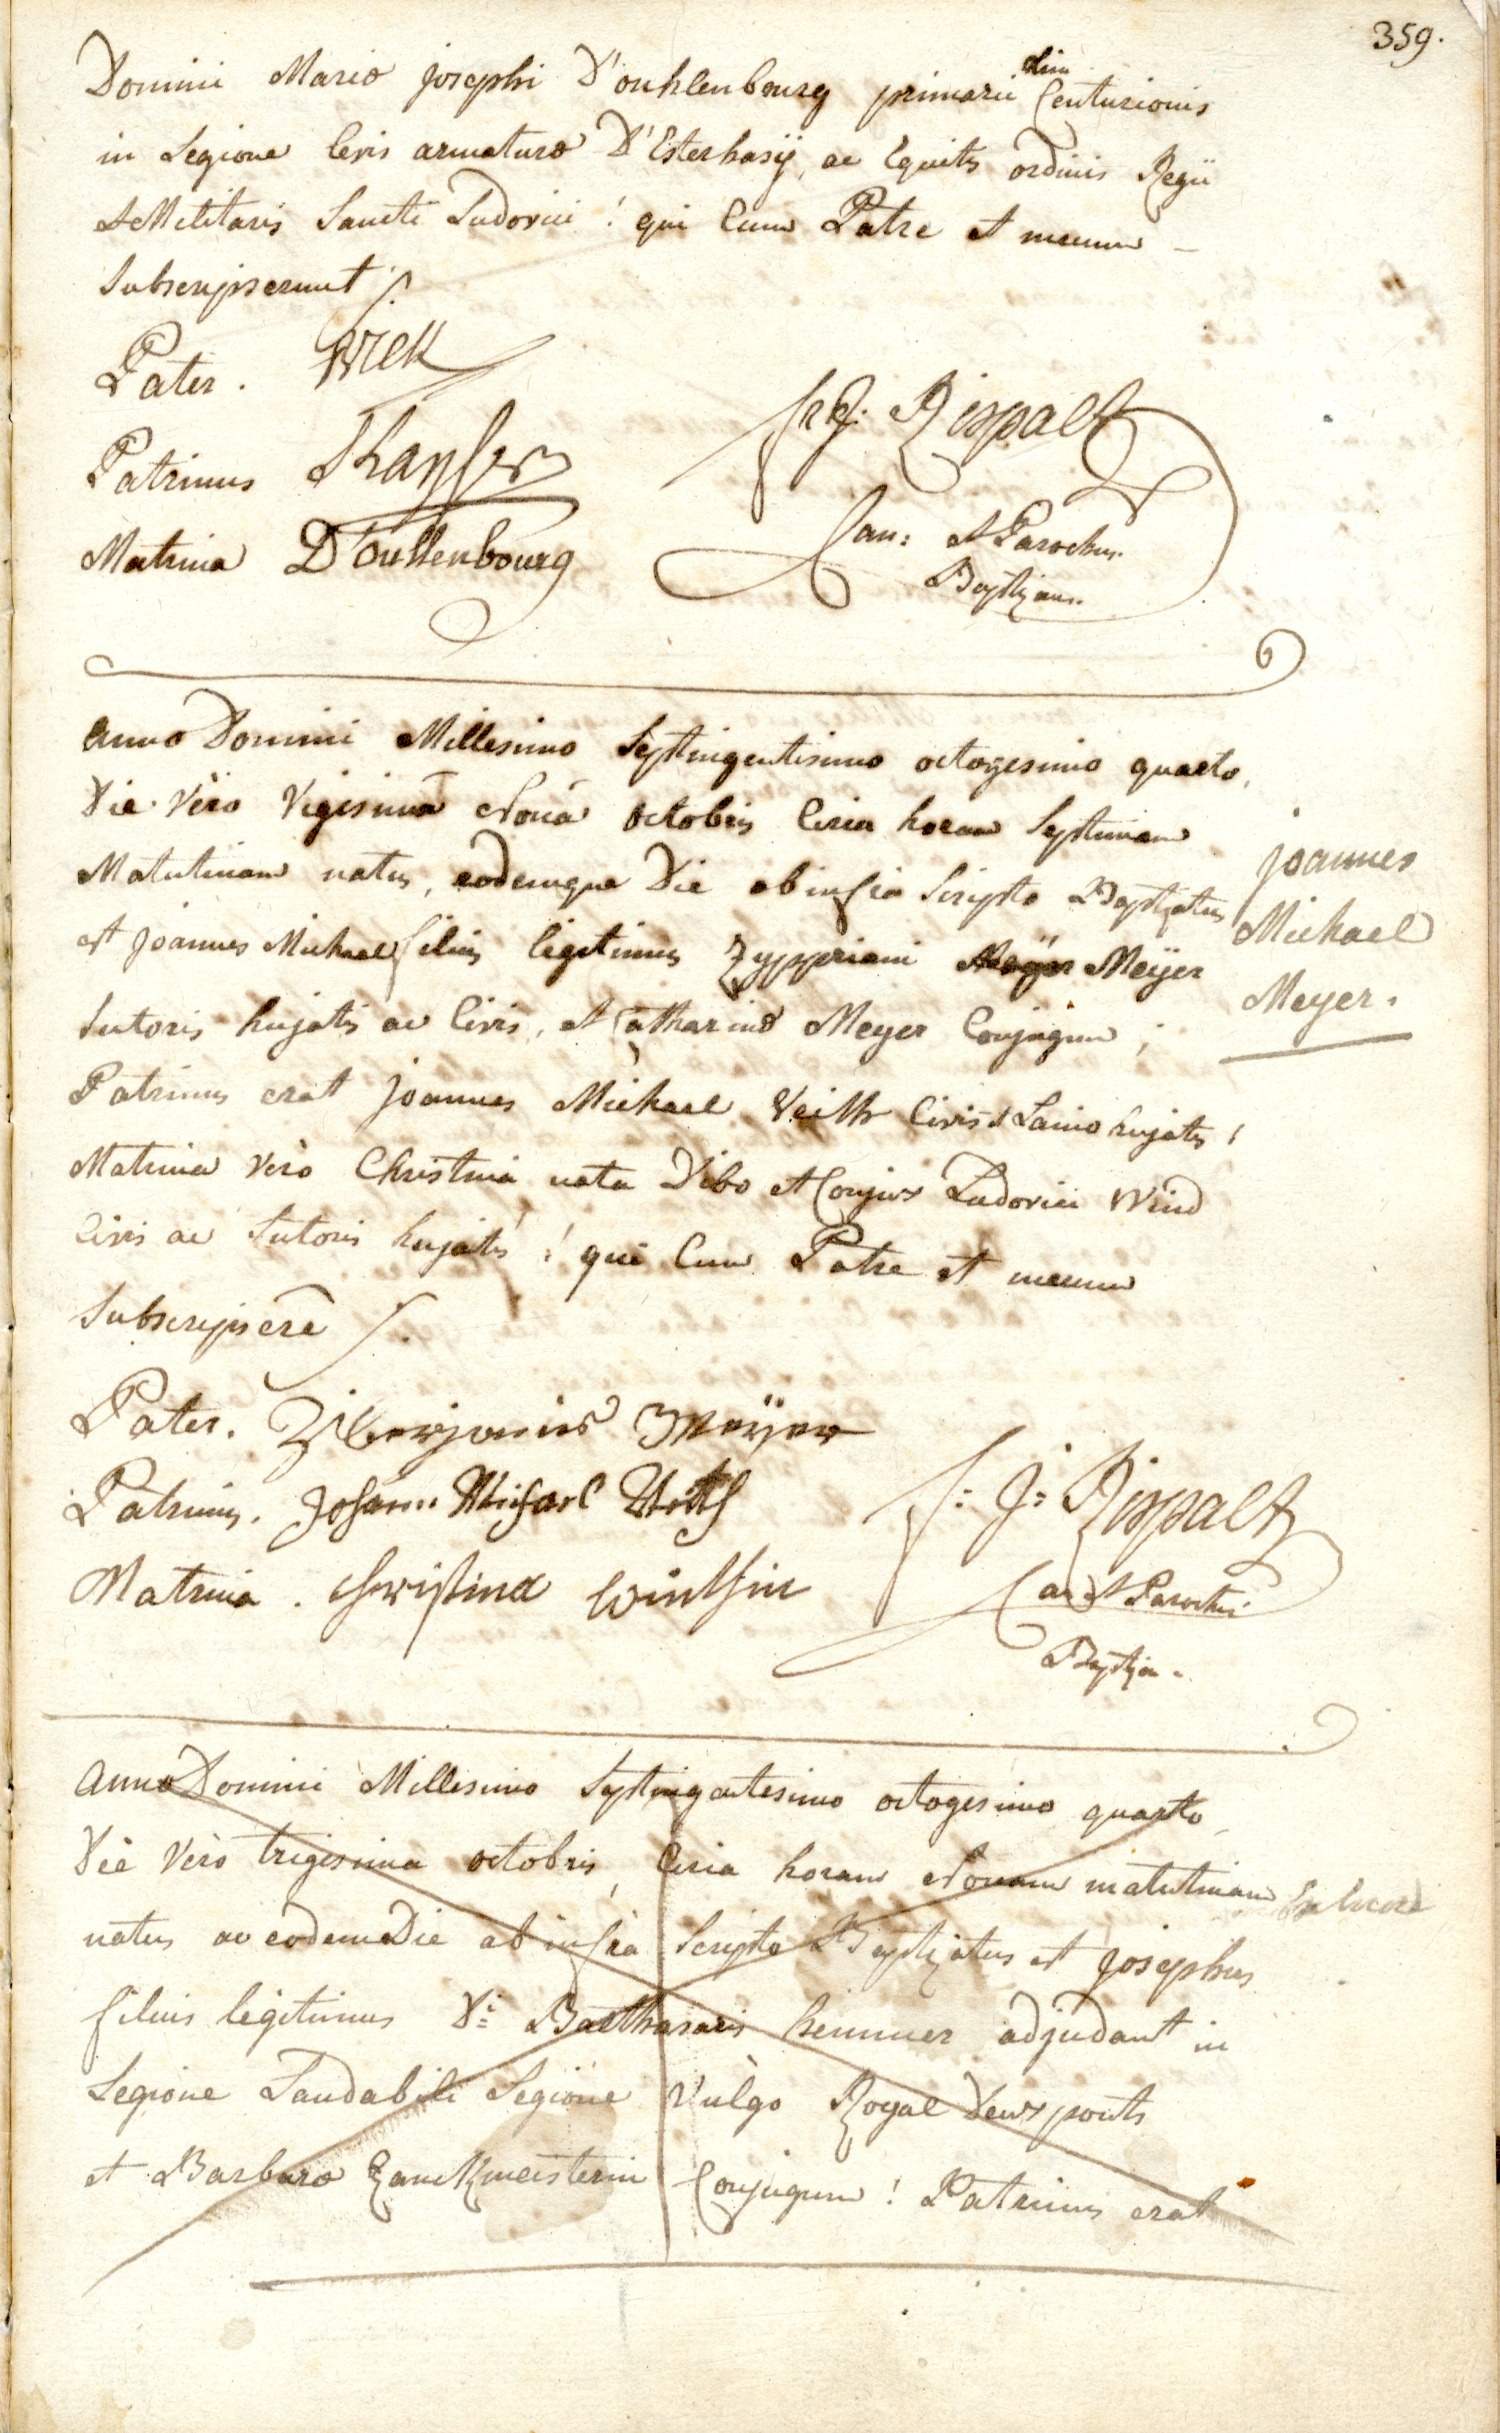 359.
Domini Mariæ josephi D'ouhlenbourg primarii olim Centurionis
in Legione levis armaturæ D'Esterhasÿ, ac Equitis ordinis Regii
& Militaris Sancti Ludovici ! qui Cum Patre et mecum –
Subscripserunt ∫.
Pater. Wrek
Patrinus
Matrina D'ouhlenbourg
J: Rispalt
Can: & Parochus
Baptizans.
Anno Domini Millesimo Septingentisimo octogesimo quarto,
Die Vèro Vigesimâ Nonâ octobris Circa horam Septimam
Matutinam natus, eodemque Die ab infra Scripto Baptizatus
est joannes Michael filius legitimus Zyppriani Meÿer
Sutoris hujatis ac Civis, et Catharinæ Meyer Conjugum ;
Patrinus erat joannes Michael Veith Civis & Lanio hujatis !
Matrina Verò Christina nata Dibo et Conjux Ludovici Wind
Civis ac Sutoris hujatis ! qui Cum Patre et mecum
Subscripserê ∫.
joannes
Michael
Meyer.
Pater. Ziberjanius Meÿer
Patrinus. Johann Michael Veith
Matrina. Christina Windsin
J: Rispalt
Can & Parochus
Baptiza.
Anno Domini Millesimo Septingentesimo octogesimo quarto
Die Verò trigesima octobris, Circa horam Nonam matutinam
natus ac eodem Die ab infra Scripto Baptizatus est josephus
filius legitimus D: Balthasaris hemmer adjudant in
Legione Laudabili Legione Vùlgo Royal Deuxponts
et Barbaræ Zanckmeisterin Conjugum ! Patrinus erat